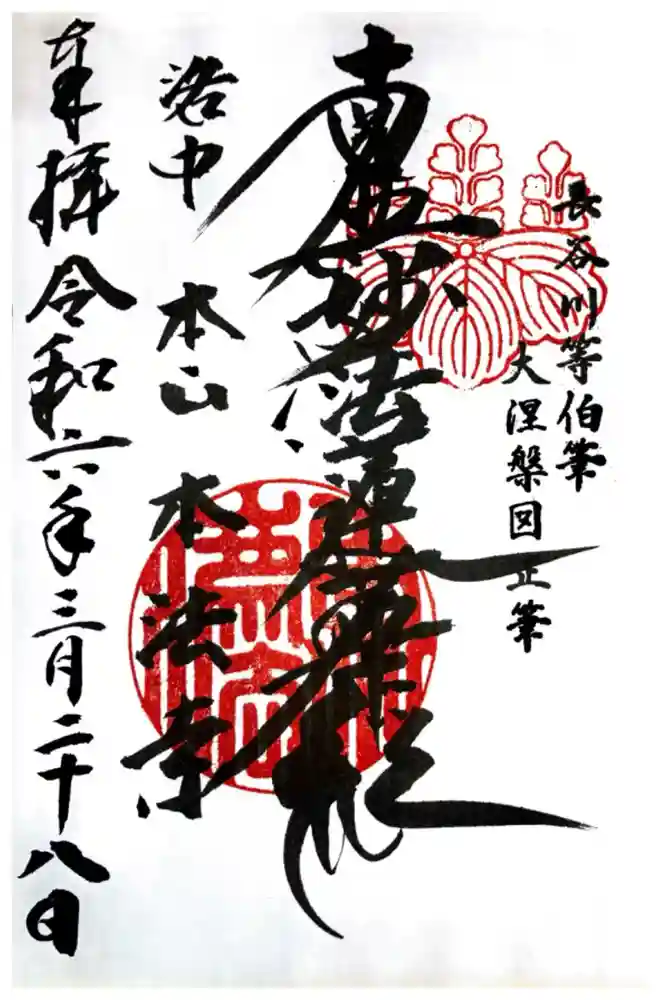 長谷川等伯筆
大涅槃図 正筆
南無妙法蓮華経
洛中 本山 本法寺
奉拝 令和六年三月二十八日